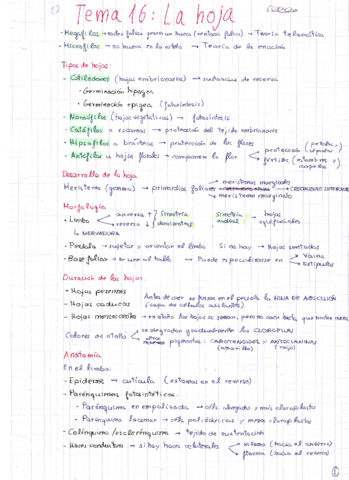 Tema 16: La hoja
- Megafilos → estas hojas dejan un hueco (ventana foliar) → Teoría telomática
- Microfilos → no hueco en la estela → Teoría de la enación
Tipos de hojas:
- Cotiledones (hojas embrionarias) → sustancias de reserva
• Germinación hipogea
• Germinación epigea (fotosíntesis)
- Nomófilos (hojas vegetativas) → fotosíntesis
- Catáfilos o escamas → protección del tejido embrionario
- Hipsófilos o brácteas → protección de las flores
- Antófilos u hojas florales → componen la flor
protección (pétalos y sépalos)
fértiles (estambres y carpelos)
Desarrollo de la hoja
Meristemo (yema) → primordios foliares
→ meristemo marginal
Morfología
- Limbo
anverso ↑
reverso ↓
Simetría dorsiventral
Simetría radial → hojas equifaciales
↳ NERVADURA
- Pecíolo → sujetar y orientar el limbo Si no hay → Hojas sentadas
- Base foliar → se une al tallo → Puede especializarse en
Vaina
Estípulas
Duración de las hojas
- Hojas perennes
- Hojas caducas
Antes de caer se forma en el pecíolo la ZONA DE ABSCISIÓN
(capa de células suberificadas)
- Hojas marcescentes → en otoño las hojas se secan, pero no caen hasta que brotan nuevas
Colores de otoño
se degradan gradualmente las CLOROFILAS
pigmentos: CAROTENOIDES y ANTOCIANINAS
(amarillo) (rojo)
Anatomía
En el limbo:
- Epidermis → cutícula (estomas en el reverso)
- Parénquimas fotosintéticos:
• Parénquima en empalizada → céls. alargadas y más cloroplastos
• Parénquima lacunar → céls. poliédricas y menos cloroplastos
- Colénquima/esclerénquima → tejido de sustentación
- Haces conductores → si hay haces colaterales
xilema (hacia el anverso)
floema (hacia el reverso)